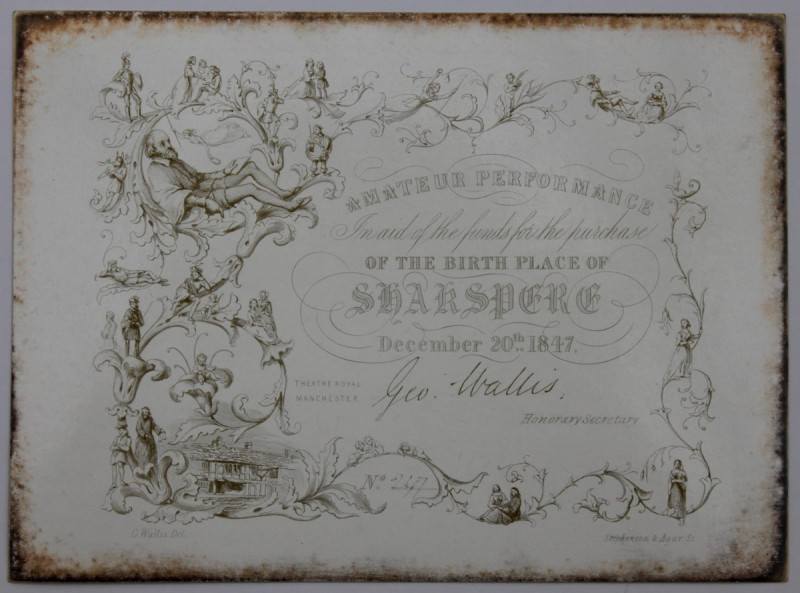 AMATEUR PERFORMANCE
In aid of the funds for the purchase
OF THE BIRTH PLACE OF
SHAKSPERE
December 20th 1847.
THEATRE ROYAL
MANCHESTER
Geo. Wallis.
Honorary Secretary
No. 247
G. Wallis Del.
Stephenson & Agar Sc.